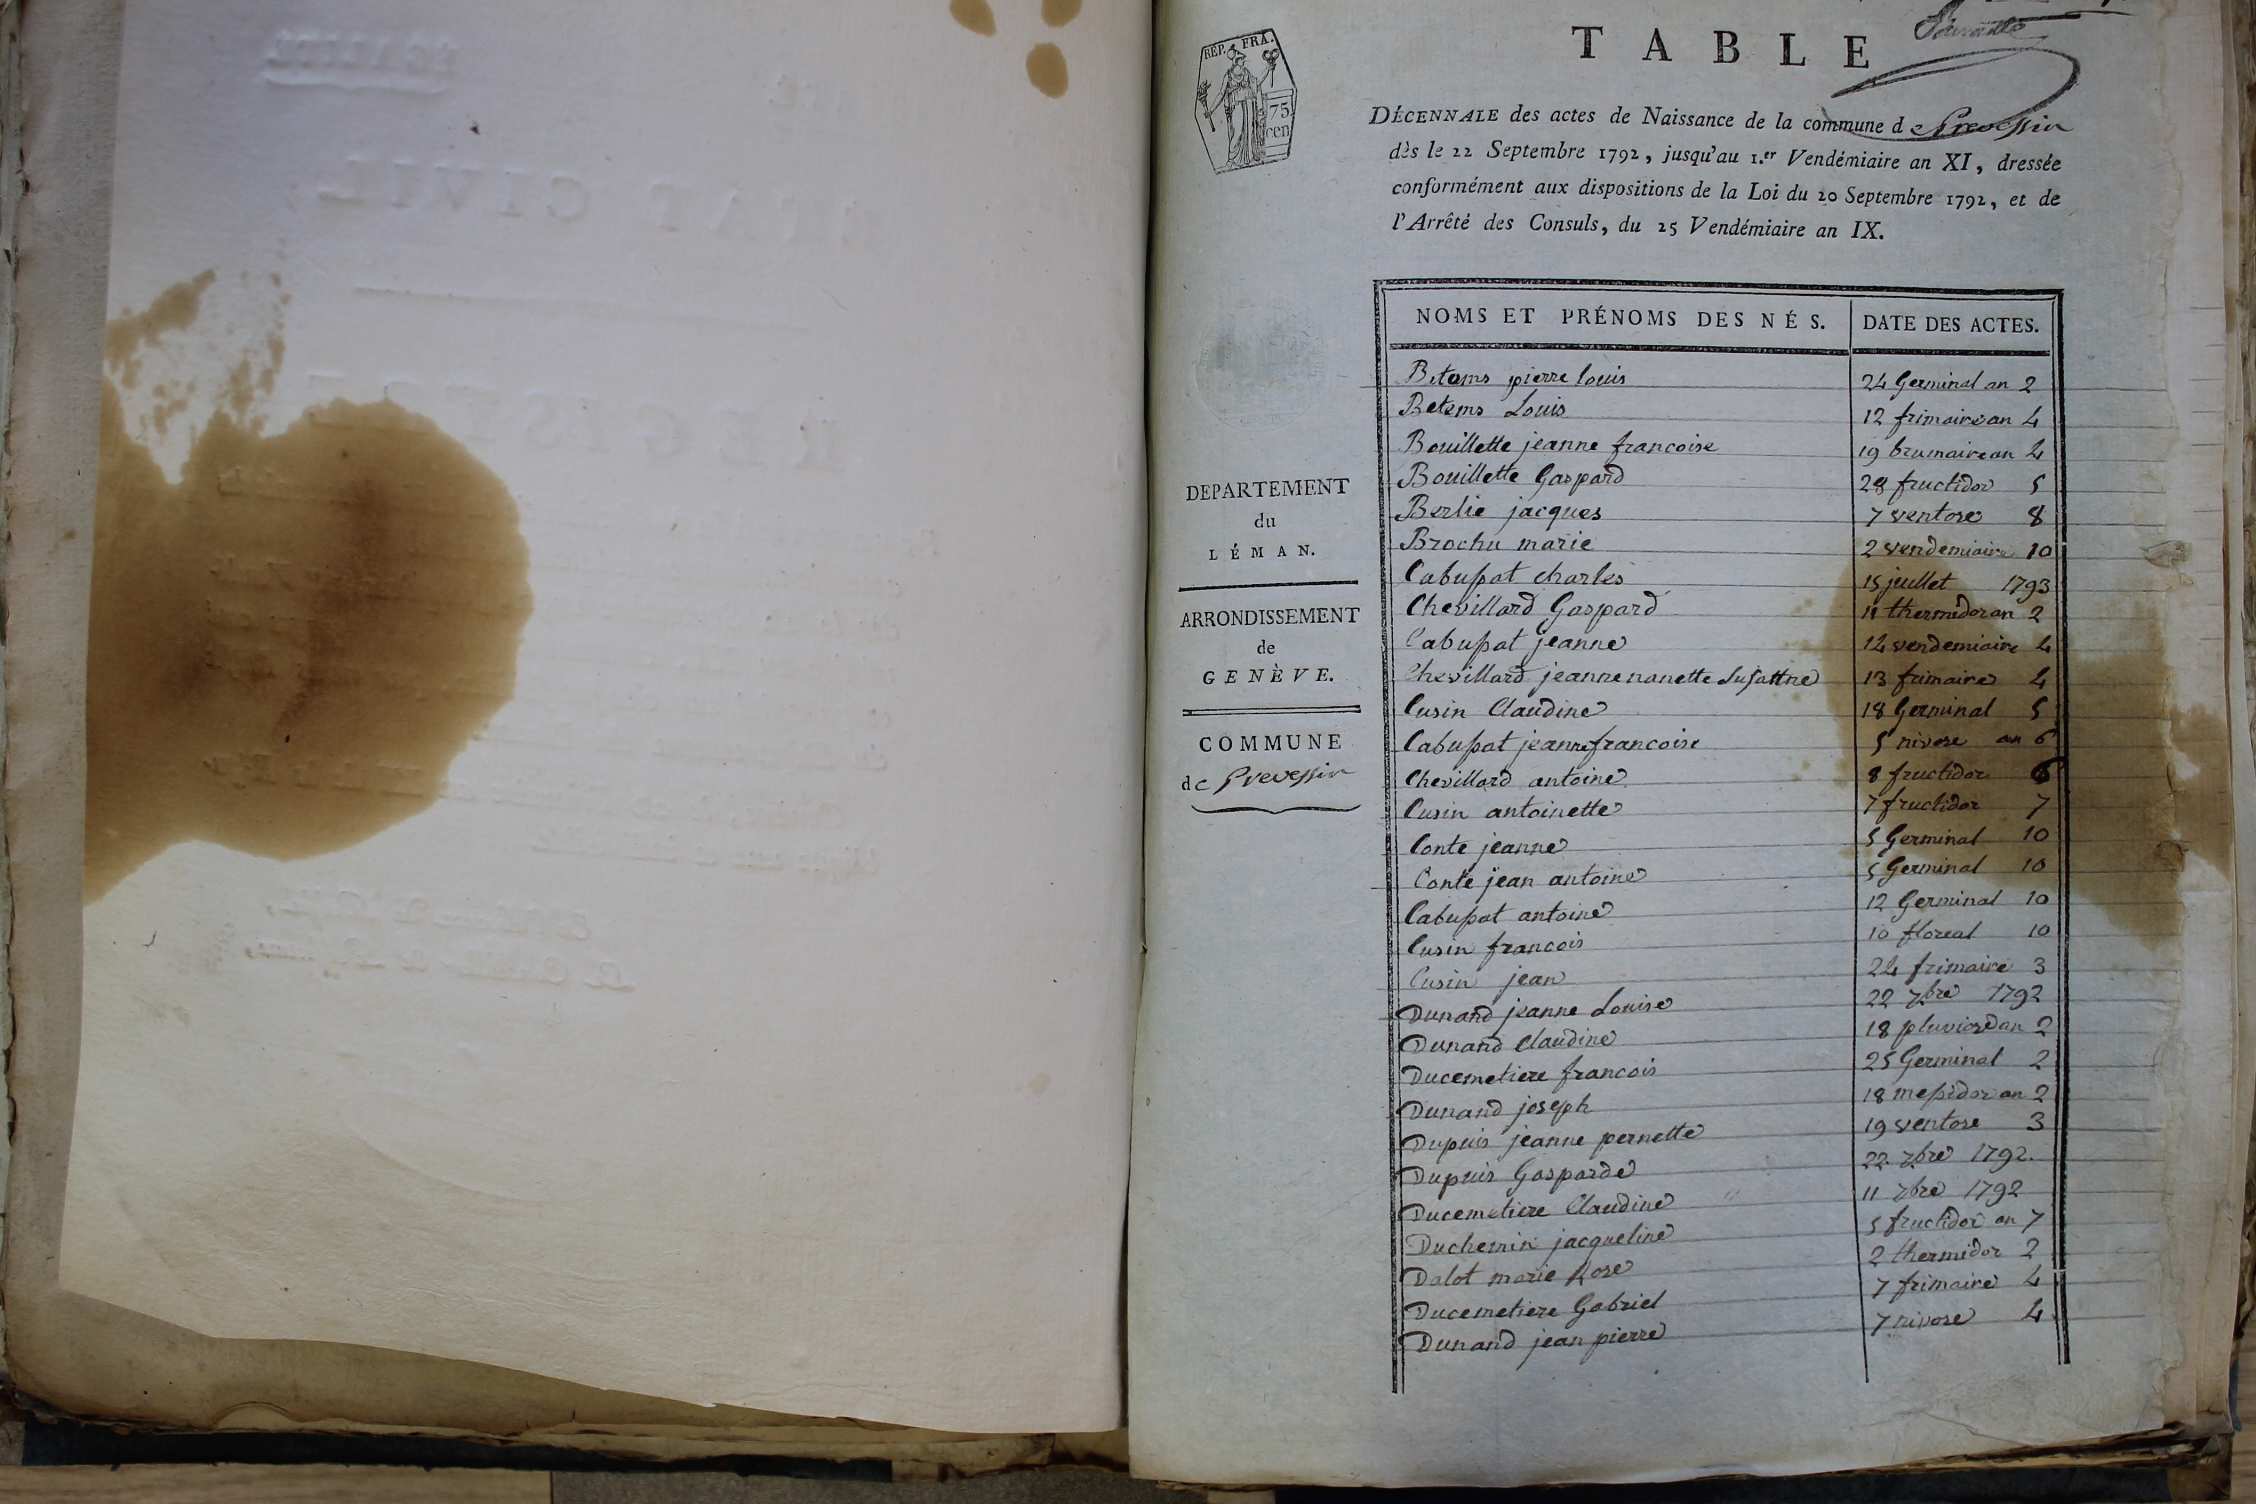 TABLE
REP. FRA.
75
cen
DÉCENNALE des actes de Naissance de la commune de Prevessin
dès le 22 Septembre 1792, jusqu'au 1.er Vendémiaire an XI, dressée
conformément aux dispositions de la Loi du 20 Septembre 1792, et de
l'Arrêté des Consuls, du 25 Vendémiaire an IX.
DEPARTEMENT
du
LÉMAN.
ARRONDISSEMENT
de
GENÈVE.
COMMUNE
de Prevessin
NOMS ET PRÉNOMS DES NÉS. DATE DES ACTES.
Betems pierre louis 24 Germinal an 2
Betems Louis 12 frimaire an 4
Bouillette jeanne francoise 19 brumaire an 4
Bouillette Gaspard 28 fructidor 5
Berlie jacques 7 ventose 8
Brochu marie 2 vendemiaire 10
Cabussat charles 15 juillet 1793
Chevillard Gaspard 11 thermidor an 2
Cabussat jeanne 14 vendemiaire 4
Chevillard jeanne nanette Susattne 13 frimaire 4
Cusin Claudine 18 Germinal 5
Cabussat jeanne francoise 5 nivose an 6
Chevillard antoine 8 fructidor 6
Cusin antoinette 7 fructidor 7
Conte jeanne 5 Germinal 10
Conte jean antoine 5 Germinal 10
Cabussat antoine 12 Germinal 10
Cusin francois 10 floreal 10
Cusin jean 24 frimaire 3
Dunand jeanne Louise 22 7bre 1792
Dunand Claudine 18 pluviose an 2
Ducemetiere francois 25 Germinal 2
Dunand joseph 18 messidor an 2
Dupuis jeanne pernette 19 ventose 3
Dupuis Gasparde 22 7bre 1792.
Ducemetiere Claudine 11 7bre 1792
Duchemin jacqueline 5 fructidor an 7
Dalot marie Rose 2 thermidor 2
Ducemetiere Gabriel 7 frimaire 4
Dunand jean pierre 7 nivose 4